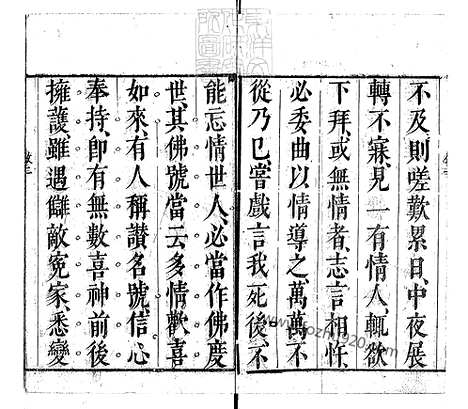 不及則嗟歎累日中夜展
轉不寐見一有情人輒欲
下拜或無情者志言相忤
必委曲以情導之萬萬不
從乃已嘗戲言我死後不
能忘情世人必當作佛度
世其佛號當云多情歡喜
如來有人稱讚名號信心
奉持即有無數喜神前後
擁護雖遇讎敵寃家悉變